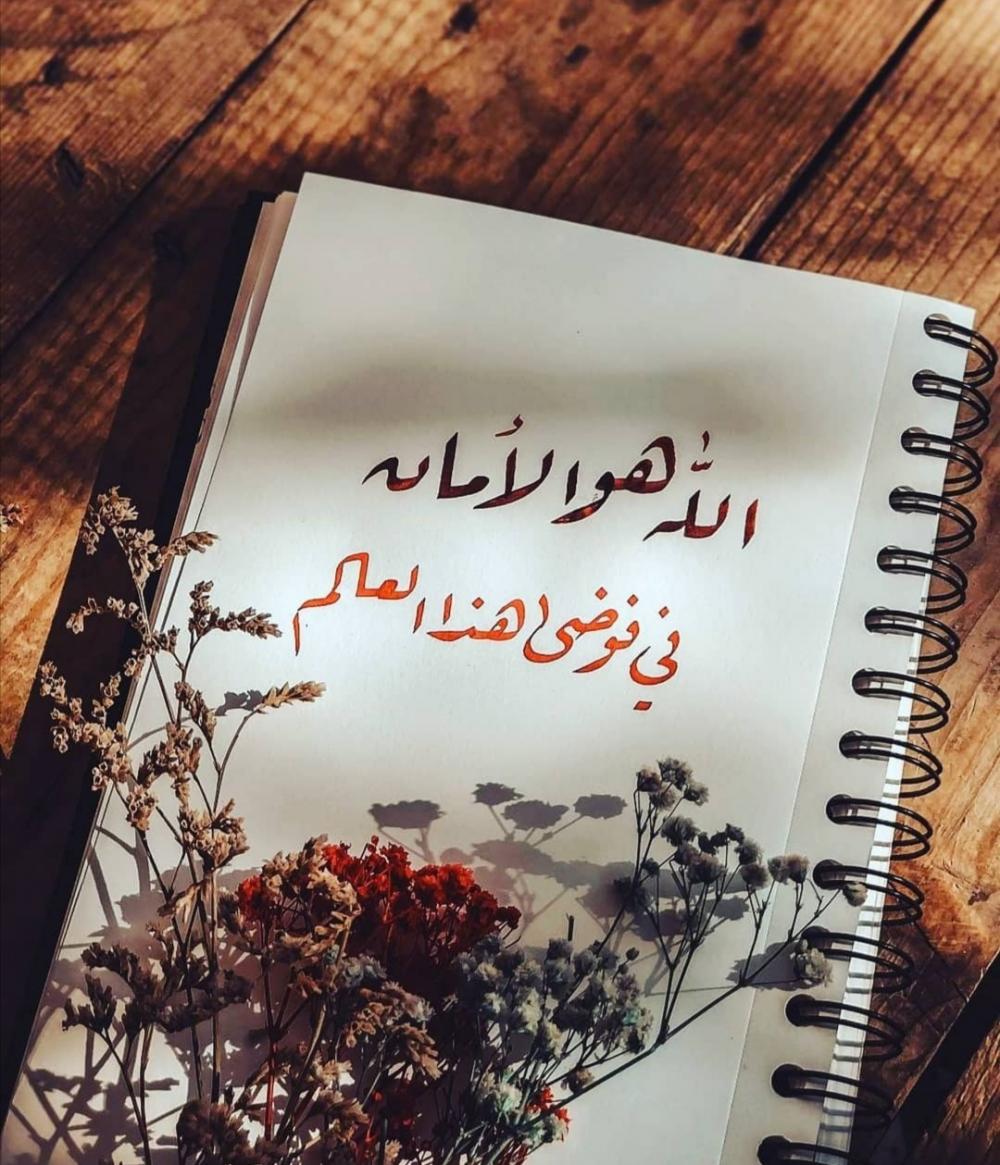 الله هو الأمان
في فوضى هذا العالم